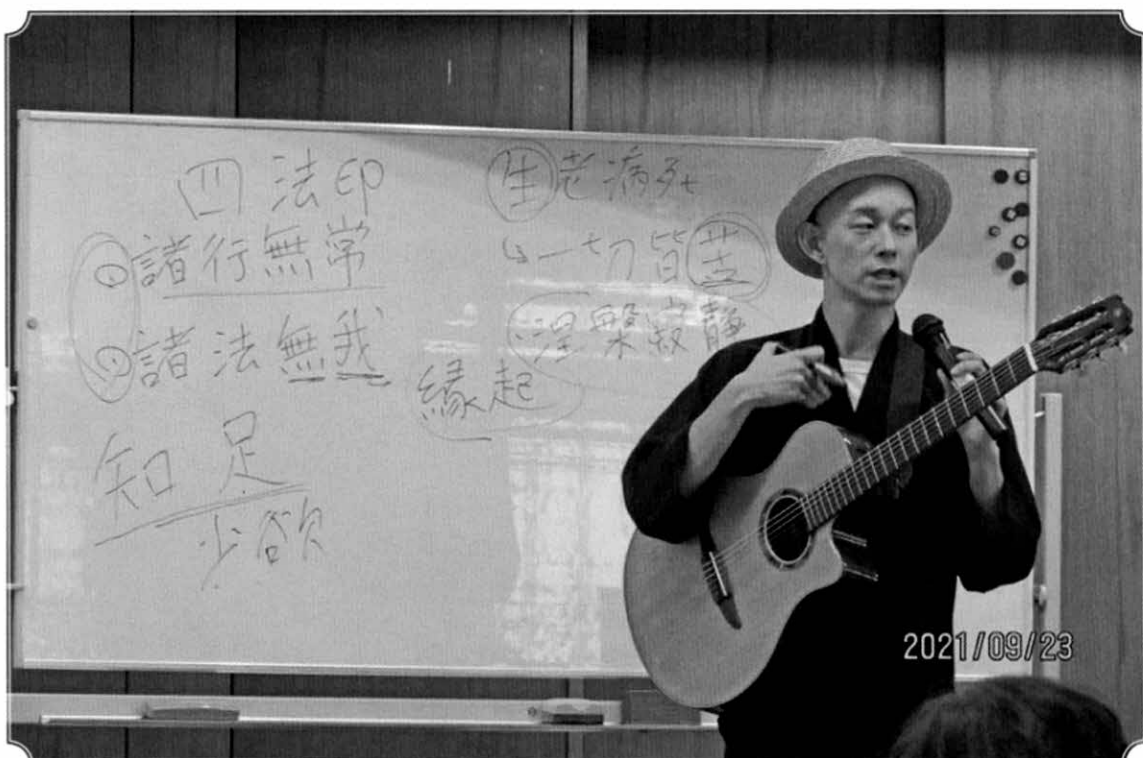 四法印
①諸行無常
②諸法無我
知足
少欲
生老病死
↳一切皆苦
涅槃寂静
縁起
2021/09/23